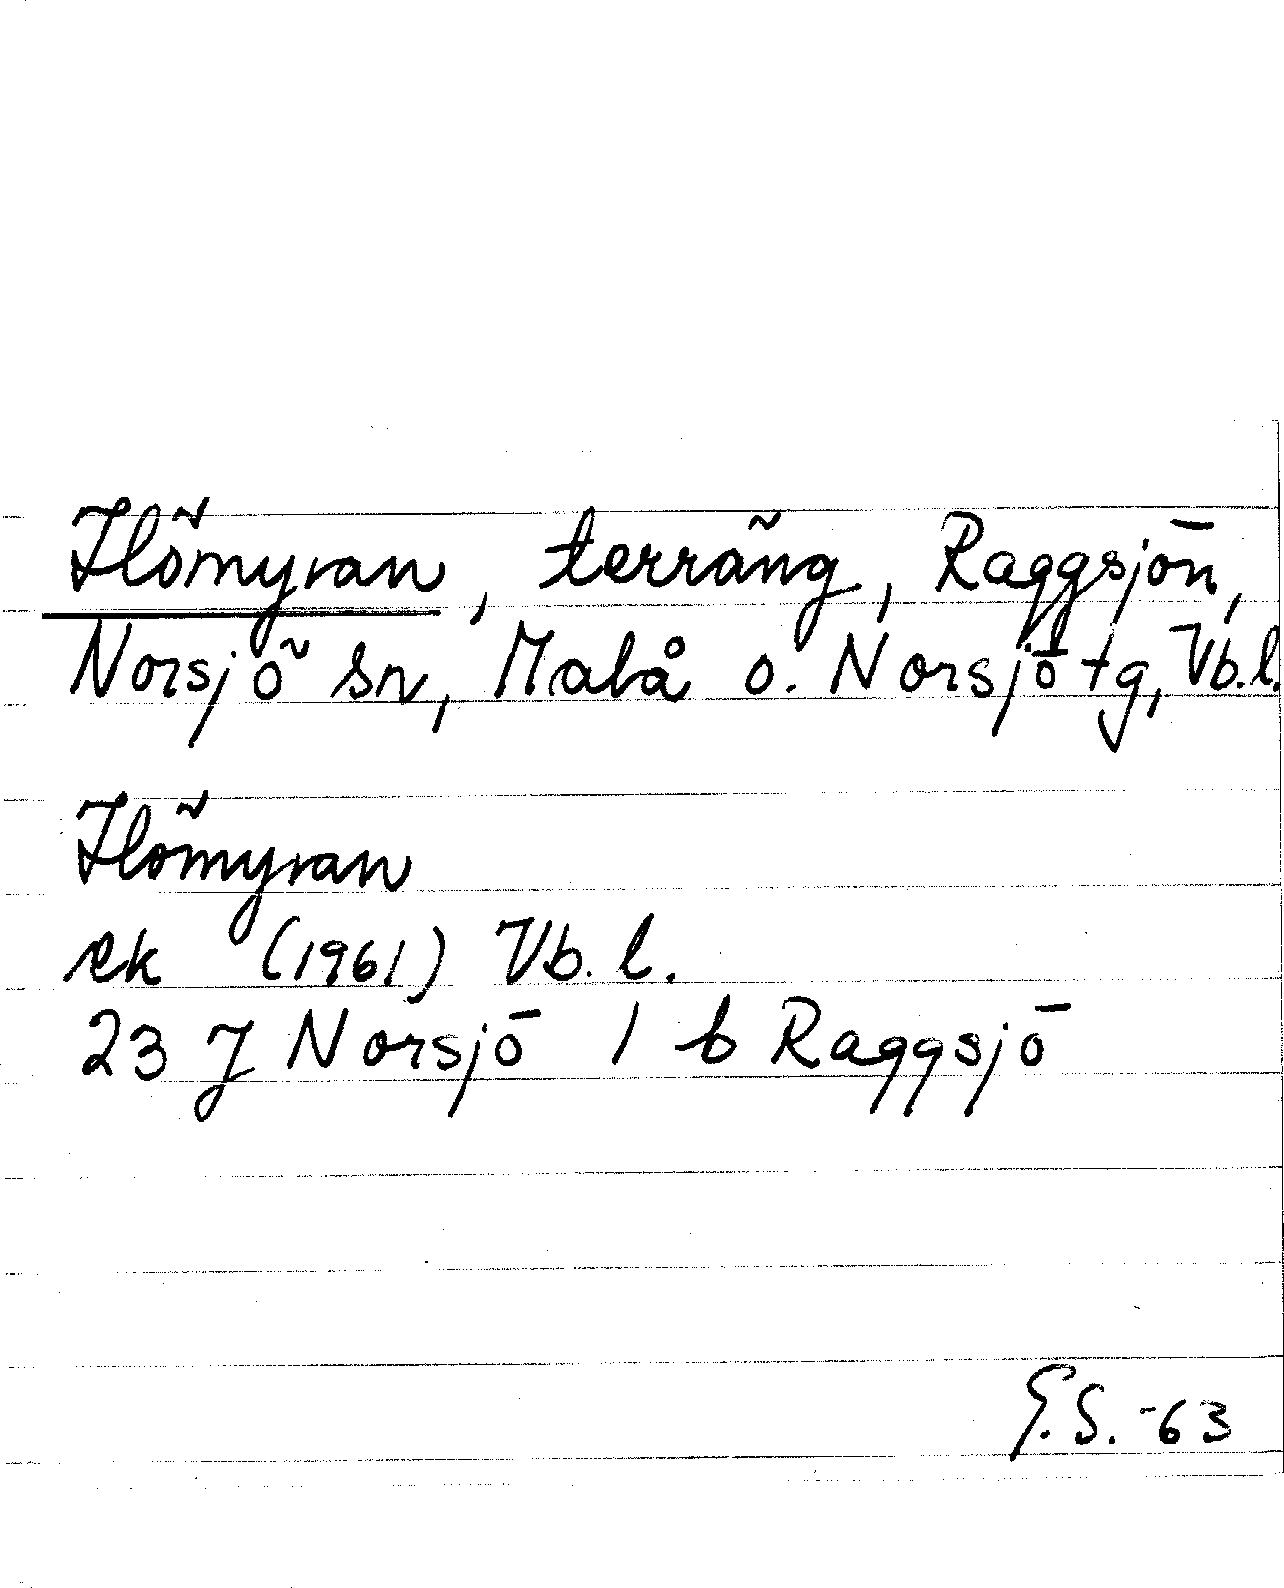 Ilömyran, terräng, Raggsjön,
Norsjö sn, Malå o. Norsjö tg, Vb.l.
Ilömyran
ek (1961) Vb. l.
23 J Norsjö 1 b Raggsjö
G.S. -63